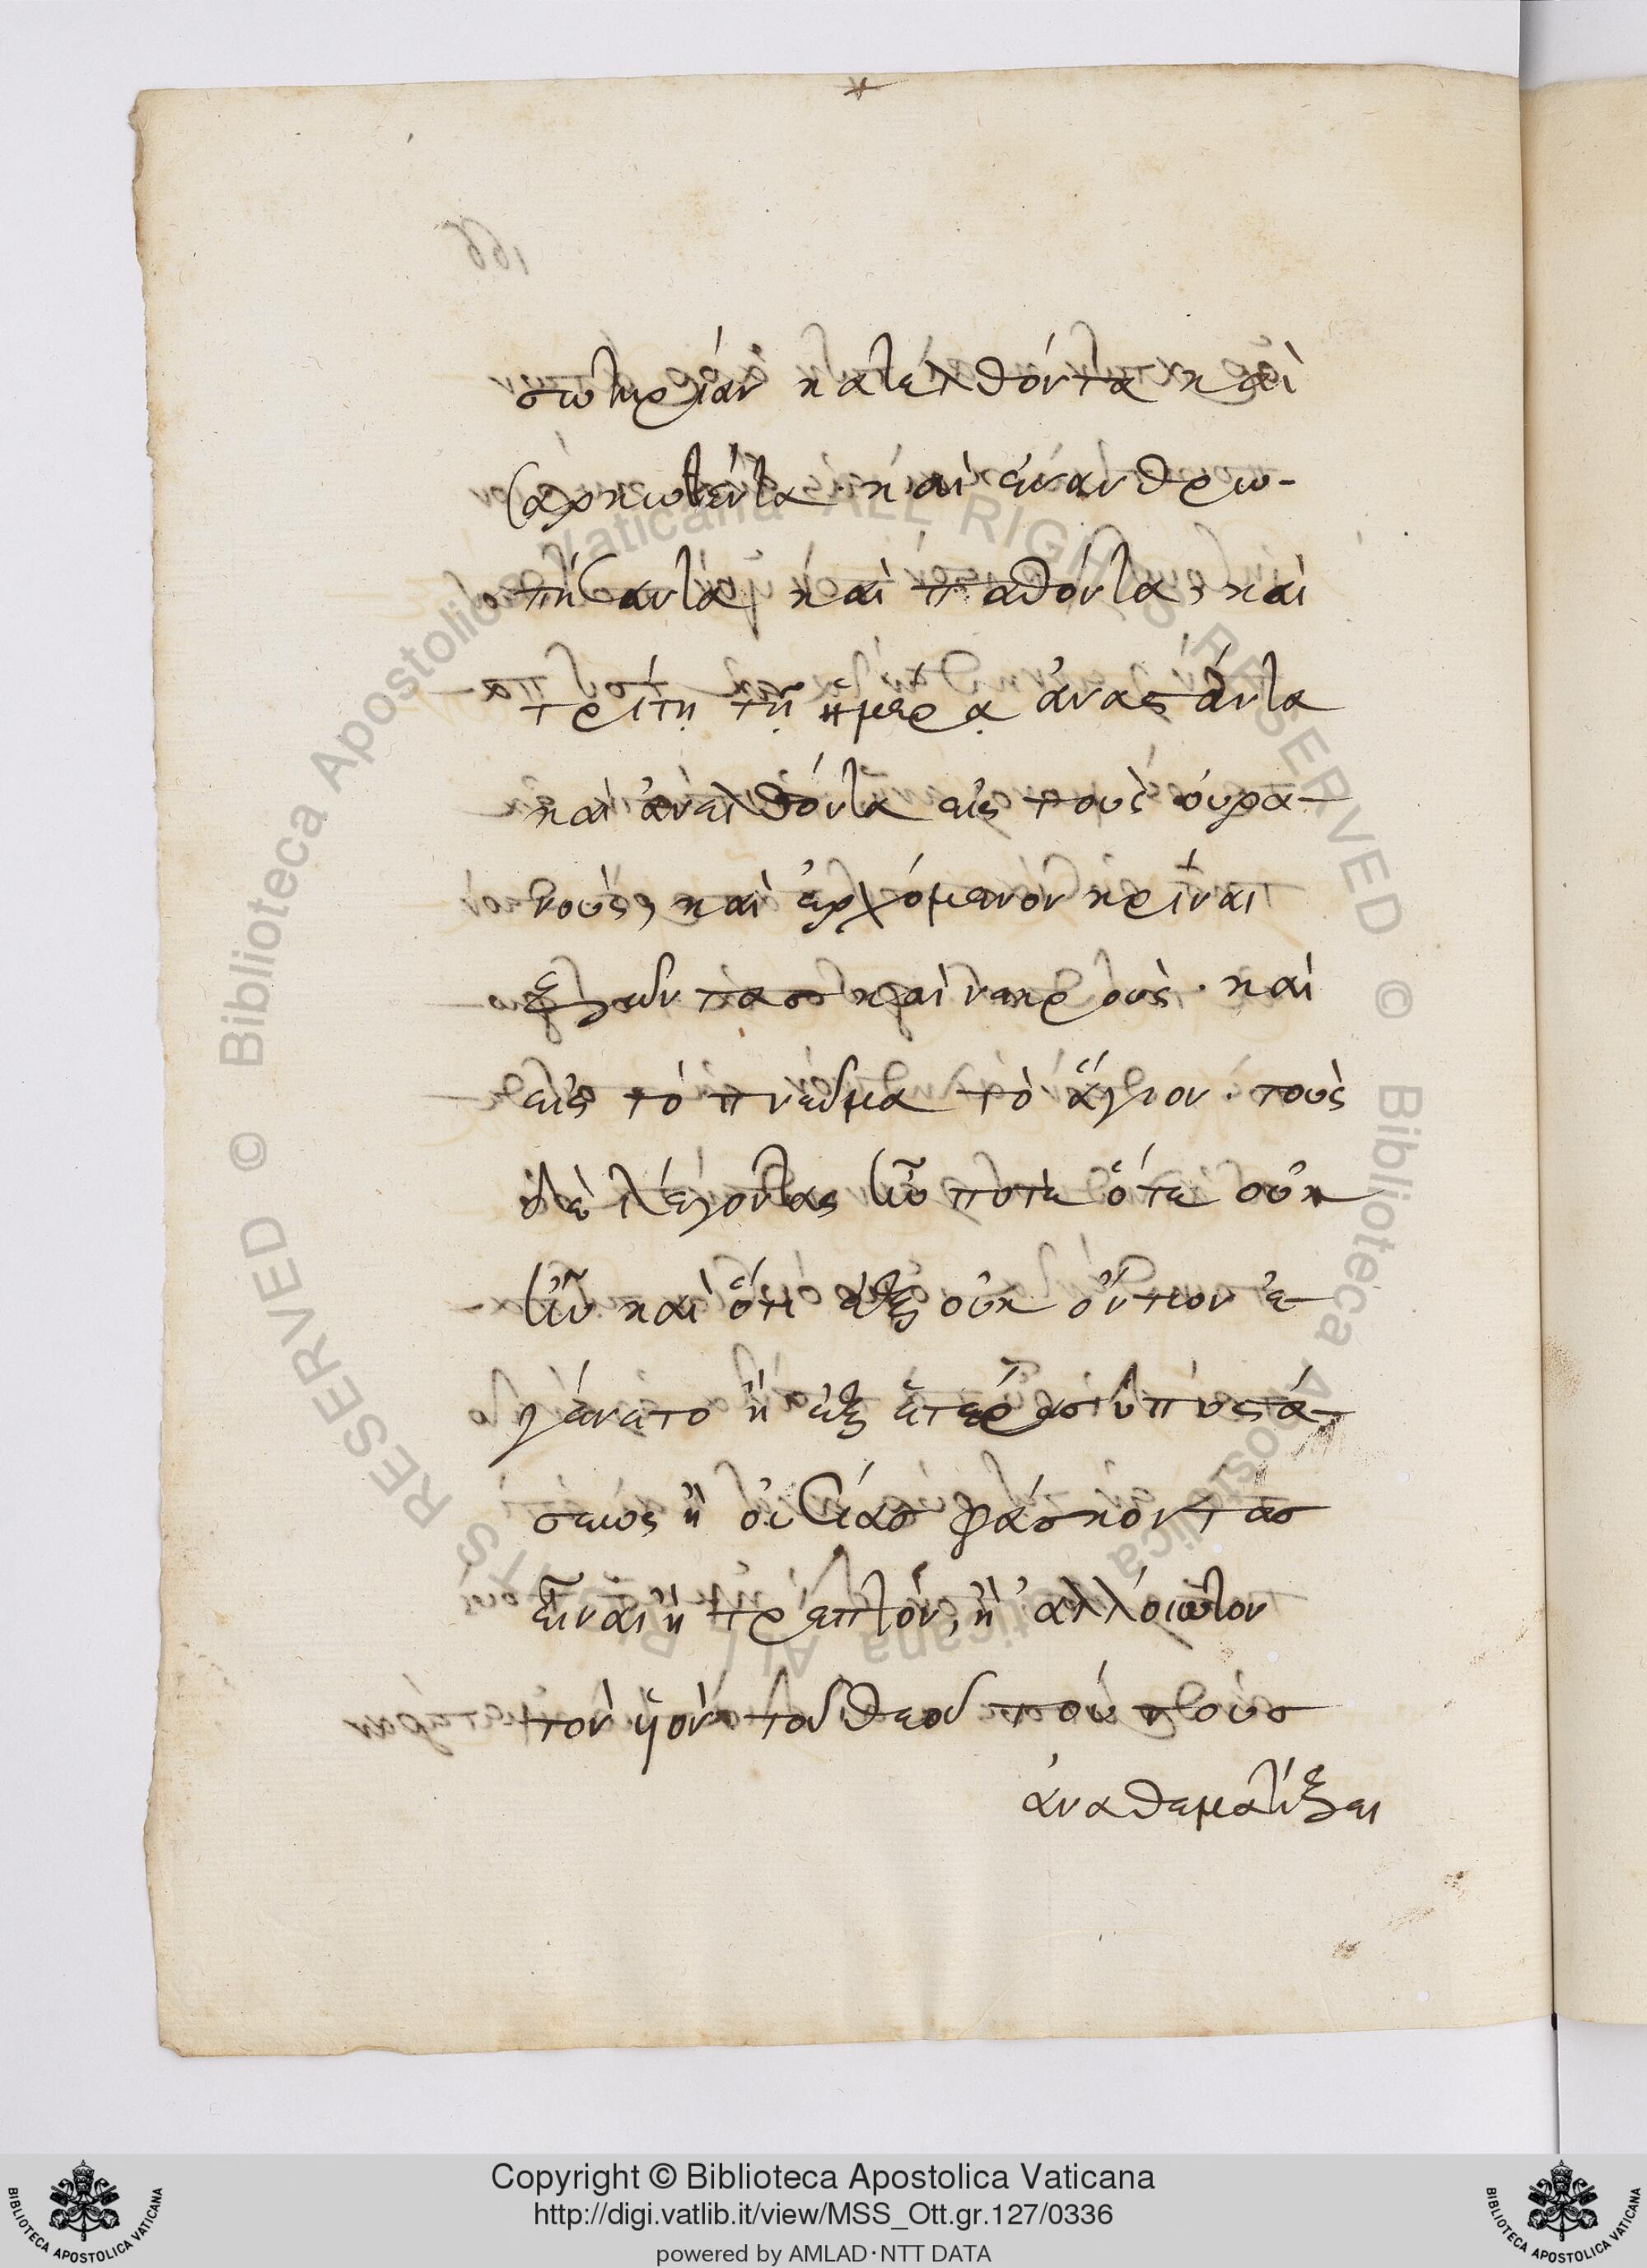 σωτηρίαν κατελθόντα καὶ
σαρκωθέντα· καὶ ἐνανθρω-
πήσαντα, καὶ παθόντα, καὶ
τρίτῃ τῇ ἡμέρᾳ ἀναστάντα
καὶ ἀνελθόντα εἰς τοὺς οὐρα-
νοὺς, καὶ ἐρχόμενον κρίναι
ζῶντας καὶ νεκρούς· καὶ
εἰς τὸ πνεῦμα τὸ ἅγιον· τοὺς
δὲ λέγοντας ἦν ποτὲ ὅτε οὐκ
ἦν καὶ ὅτι ἐξ οὐκ ὄντων ἐ-
γένετο ἢ ἐξ ἑτέρας ὑποστά-
σεως ἢ οὐσίας φάσκοντας
εἶναι ἢ τρεπτὸν, ἢ ἀλλοιωτον
τὸν υἱὸν τοῦ θεοῦ τούτους
ἀναθεματίζει
166
Copyright © Biblioteca Apostolica Vaticana
http://digi.vatlib.it/view/MSS_Ott.gr.127/0336
powered by AMLAD·NTT DATA
BIBLIOTECA APOSTOLICA VATICANA
BIBLIOTECA APOSTOLICA VATICANA
© Biblioteca Apostolica Vaticana ALL RIGHTS RESERVED © Biblioteca Apostolica Vaticana ALL RIGHTS RESERVED